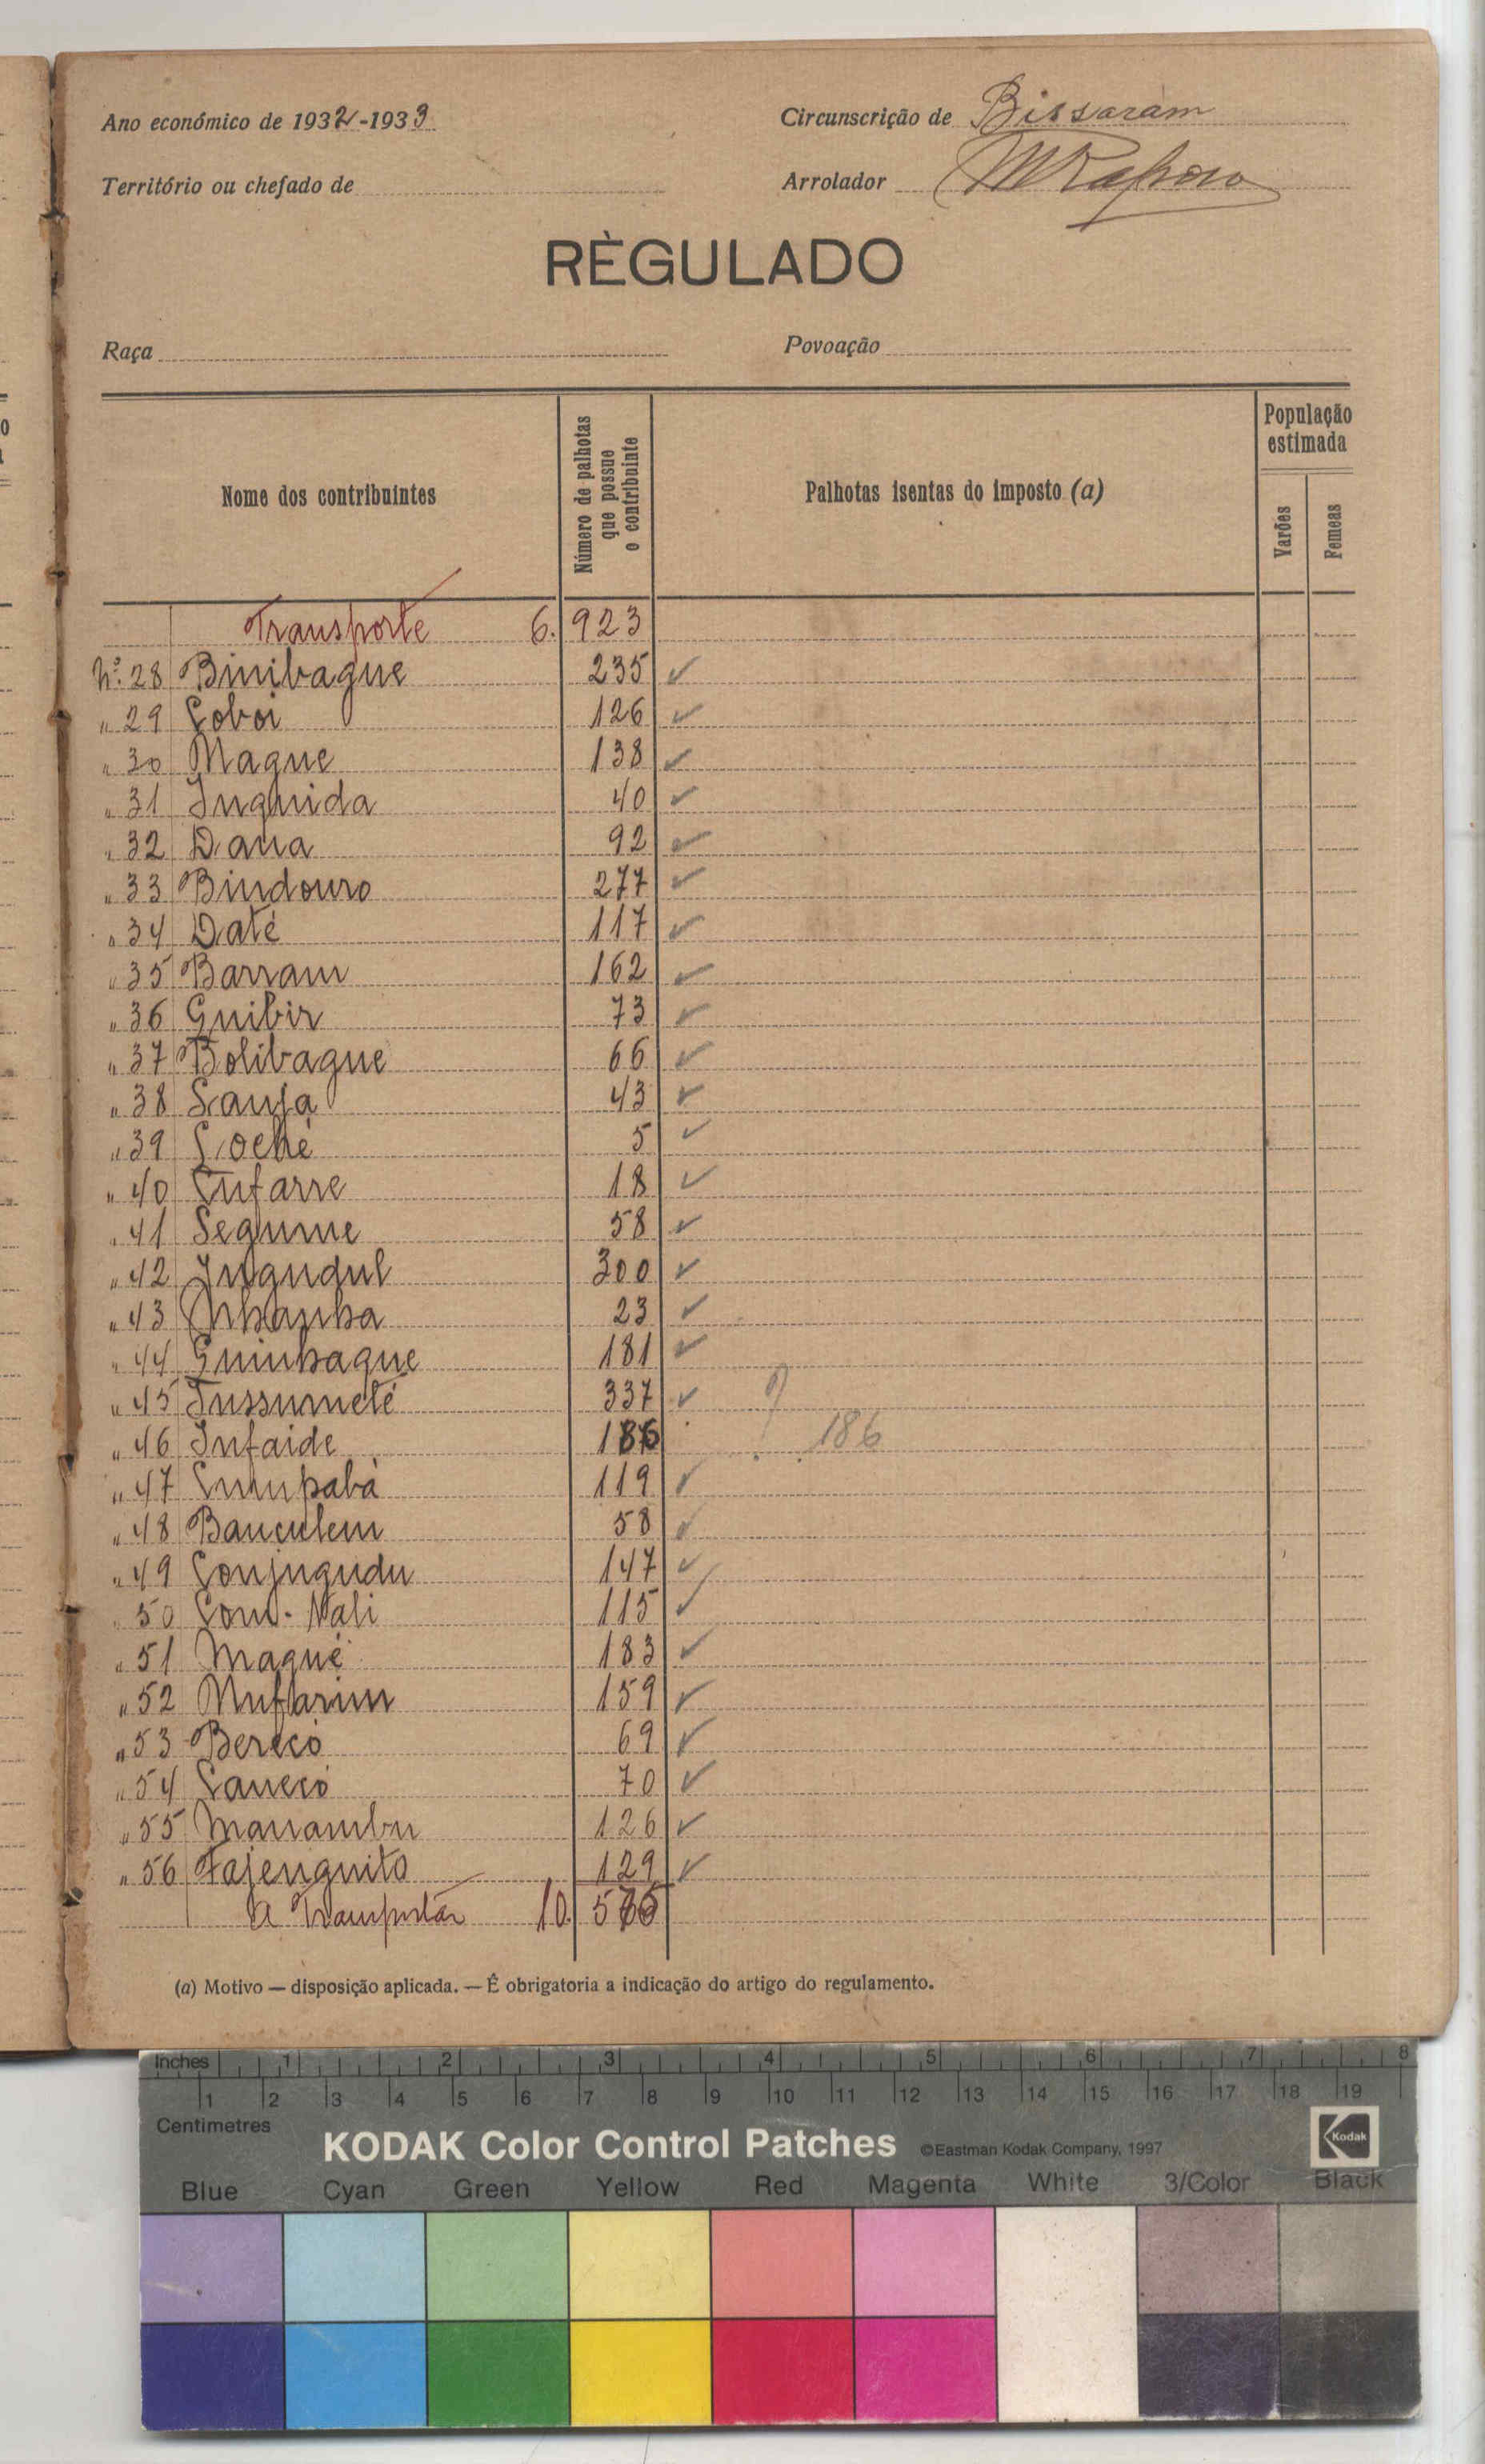 Ano económico de 1932-1933
Circunscrição de Bissoram
Território ou chefado de
Arrolador MRaposo
RÈGULADO
Raça
Povoação
Nome dos contribuintes
Número de palhotas que possue o contribuinte
Palhotas isentas do imposto (a)
População estimada
Varões
Femeas
Transporte 6.923
N.º 28 Binibaque 235 ✓
" 29 Coboi 126 ✓
" 30 Maque 138 ✓
" 31 Inquida 40 ✓
" 32 Dana 92 ✓
" 33 Bindouro 277 ✓
" 34 Daté 117 ✓
" 35 Barram 162 ✓
" 36 Guibir 73 ✓
" 37 Bolibaque 66 ✓
" 38 Sansa 43 ✓
" 39 Coché 5 ✓
" 40 Cufarre 18 ✓
" 41 Segume 58 ✓
" 42 Ingudul 300 ✓
" 43 23 ✓
" 44 181 ✓
" 45 Tussumeté 337 ✓ ?
" 46 Infaide 186 186
" 47 Cumpabà 119 ✓
" 48 Bauculem 58 ✓
" 49 Conjugudu 147 ✓
" 50 Com-Nali 115 ✓
" 51 Maqué 183 ✓
" 52 159 ✓
" 53 Berecó 69 ✓
" 54 Canecó 70 ✓
" 55 Manambu 126 ✓
" 56 Fajenquito 129 ✓
A Transportar 10.
(a) Motivo — disposição aplicada. — É obrigatoria a indicação do artigo do regulamento.
Inches 1 2 3 4 5 6 7 8
1 2 3 4 5 6 7 8 9 10 11 12 13 14 15 16 17 18 19
Centimetres
KODAK Color Control Patches ©Eastman Kodak Company, 1997 Kodak
Blue Cyan Green Yellow Red Magenta White 3/Color Black